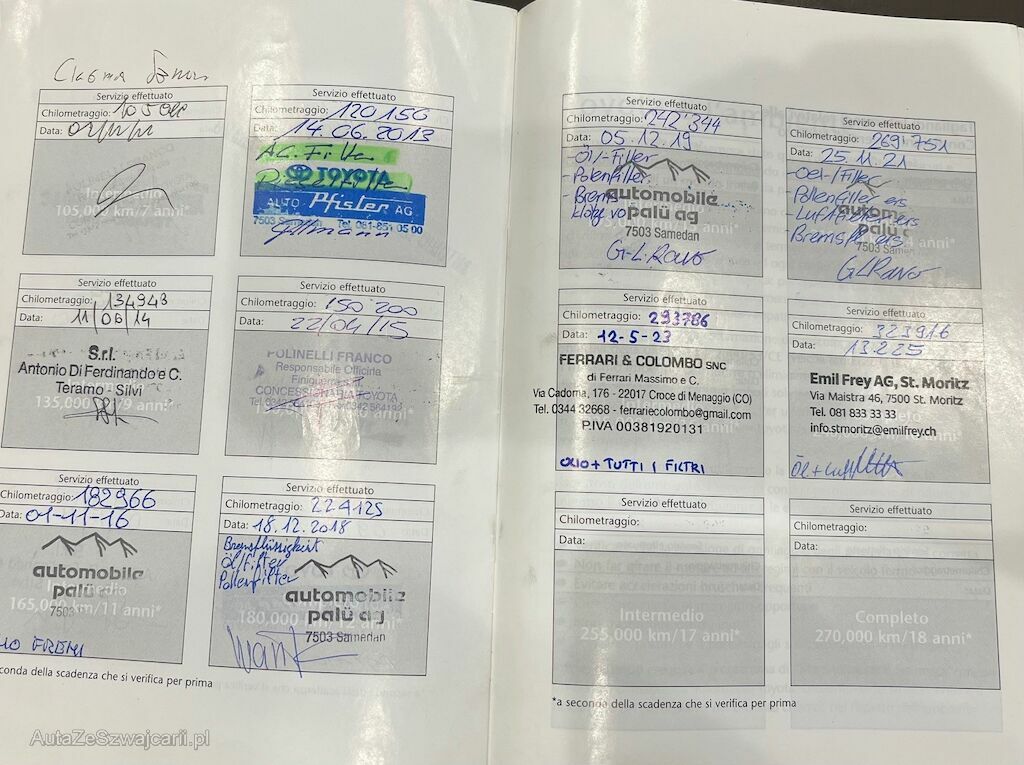 Servizio effettuato
Chilometraggio: 105000
Data:
Intermedio
105,000 km/7 anni*
Servizio effettuato
Chilometraggio: 120 150
Data: 14.06.2013
TOYOTA
AUTO Pfister AG
7503 Samedan Tel. 081-851 05 00
Servizio effettuato
Chilometraggio: 134943
Data: 11/06/14
S.r.l.
Antonio Di Ferdinando e C.
Teramo - Silvi
135,000 km/9 anni*
Servizio effettuato
Chilometraggio: 150 200
Data: 22/04/15
POLINELLI FRANCO
Responsabile Officina
CONCESSIONARIA TOYOTA
Servizio effettuato
Chilometraggio: 182966
Data: 01-11-16
automobile
palü
7503
Intermedio
165,000 km/11 anni*
FRENI
Servizio effettuato
Chilometraggio: 224125
Data: 18.12.2018
Bremsflüssigkeit
Öl/Filter
Pollenfilter
automobile
palü ag
7503 Samedan
180,000 km/12 anni*
conda della scadenza che si verifica per prima
Servizio effettuato
Chilometraggio: 242'344
Data: 05.12.19
-Öl-Filter
-Polenfilter
-Brems
klötze vo
automobile
palü ag
7503 Samedan
Servizio effettuato
Chilometraggio: 269'751
Data: 25.11.21
-Oel-/Filter
Pollenfilter ers
Luftfilter ers
-Bremsfl. ers
Servizio effettuato
Chilometraggio: 293786
Data: 12-5-23
FERRARI & COLOMBO SNC
di Ferrari Massimo e C.
Via Cadorna, 176 - 22017 Croce di Menaggio (CO)
Tel. 0344 32668 - ferrariecolombo@gmail.com
P.IVA 00381920131
OLIO + TUTTI I FILTRI
Servizio effettuato
Chilometraggio: 323916
Data: 13.2.25
Emil Frey AG, St. Moritz
Via Maistra 46, 7500 St. Moritz
Tel. 081 833 33 33
info.stmoritz@emilfrey.ch
Servizio effettuato
Chilometraggio:
Data:
Intermedio
255,000 km/17 anni*
Servizio effettuato
Chilometraggio:
Data:
Completo
270,000 km/18 anni*
*a seconda della scadenza che si verifica per prima
AutaZeSzwajcarii.pl